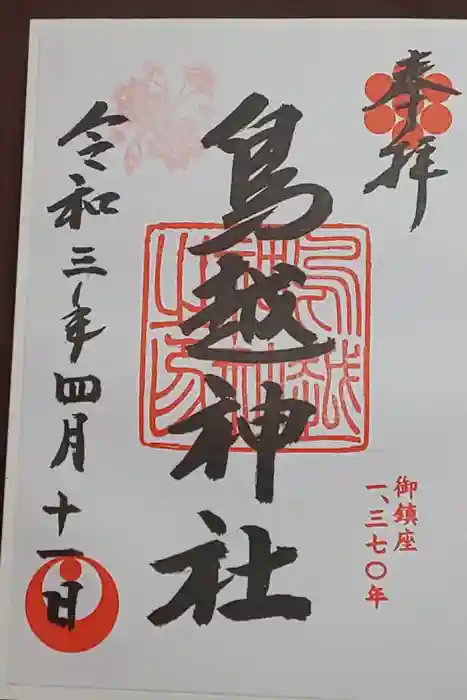 奉拝
鳥越神社
御鎮座
一、三七〇年
令和三年四月十一日